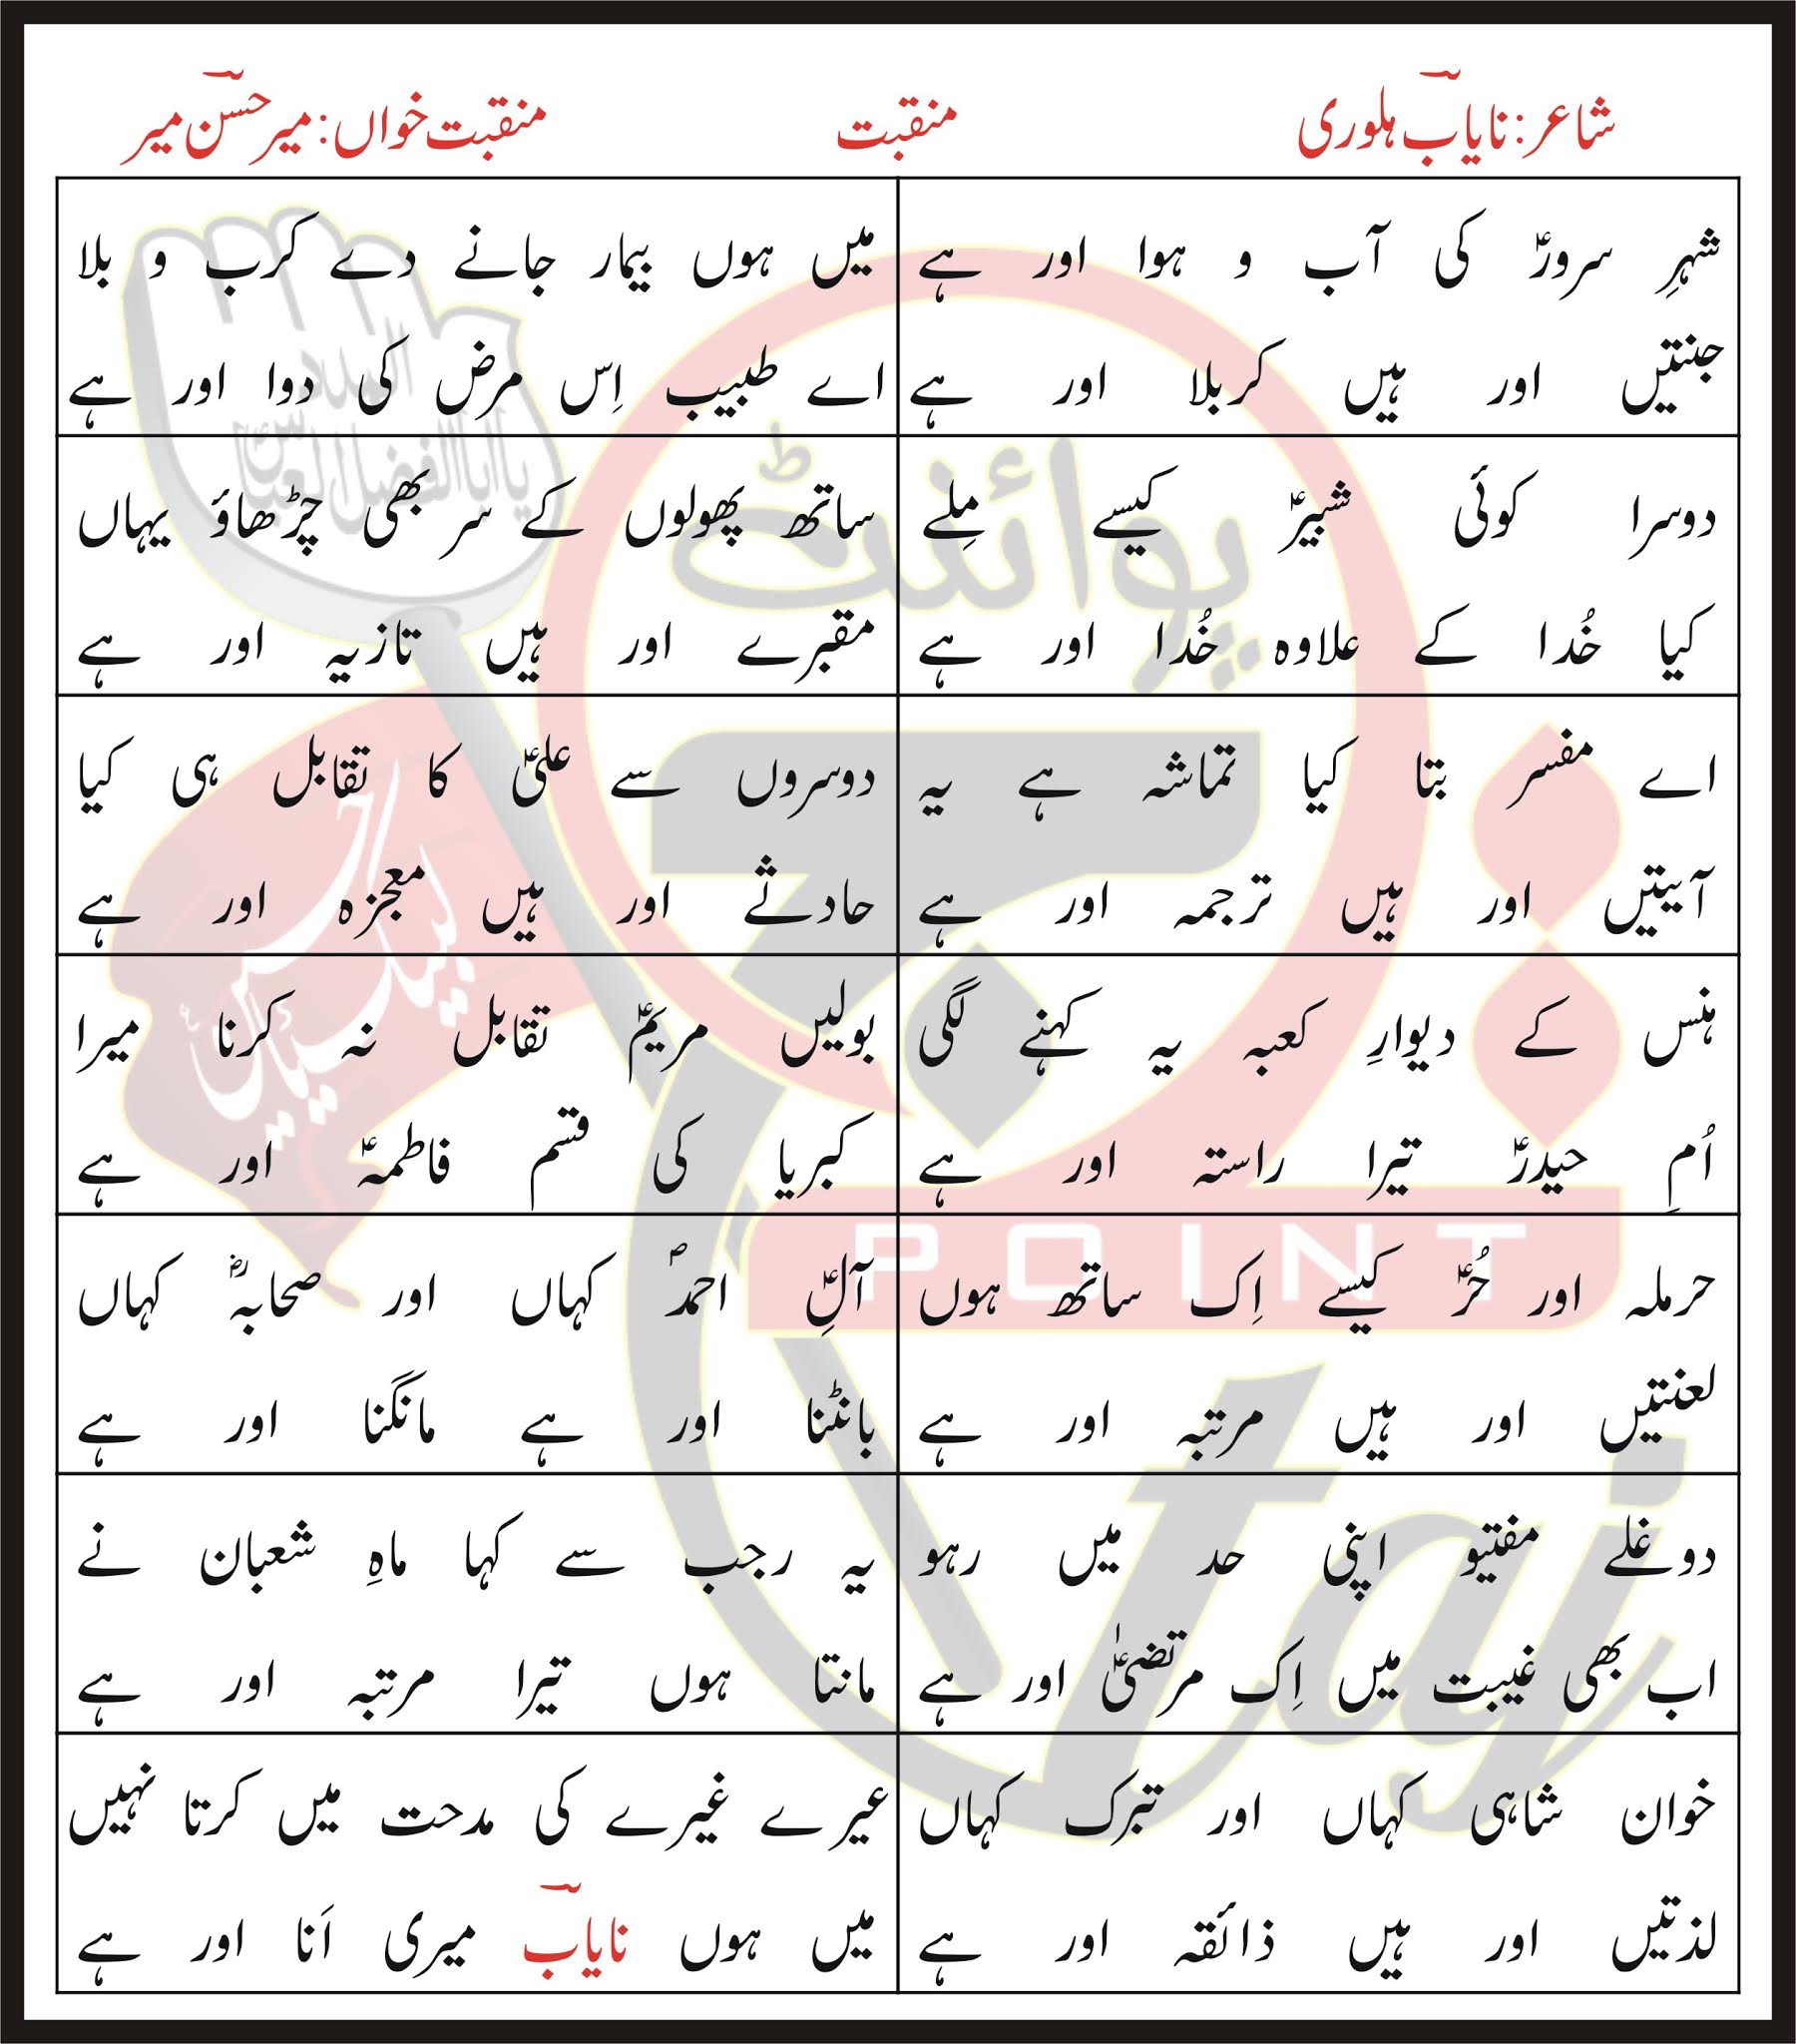 شاعر: نایابؔ ہلوری
منقبت
منقبت خواں: میر حسنؔ میر
شہرِ سرورؑ کی آب و ہوا اور ہے
جنتیں اور ہیں کربلا اور ہے
میں ہوں بیمار جانے دے کرب و بلا
اے طبیب اِس مرض کی دوا اور ہے
دوسرا کوئی شبیرؑ کیسے مِلے
کیا خُدا کے علاوہ خُدا اور ہے
ساتھ پھولوں کے سر بھی چڑھاؤ یہاں
مقبرے اور ہیں تازیہ اور ہے
اے مفسر بتا کیا تماشہ ہے یہ
آیتیں اور ہیں ترجمہ اور ہے
دوسروں سے علیؑ کا تقابل ہی کیا
حادثے اور ہیں معجزہ اور ہے
ہنس کے دیوارِ کعبہ یہ کہنے لگی
اُمِ حیدرؑ تیرا راستہ اور ہے
بولیں مریمؑ تقابل نہ کرنا میرا
کبریا کی قسم فاطمہؑ اور ہے
حرملہ اور حُرؑ کیسے اِک ساتھ ہوں
لعنتیں اور ہیں مرتبہ اور ہے
آلِؑ احمدؐ کہاں اور صحابہؓ کہاں
بانٹنا اور ہے مانگنا اور ہے
دوغلے مفتیو اپنی حد میں رہو
اب بھی غیبت میں اِک مرتضیٰؑ اور ہے
یہ رجب سے کہا ماہِ شعبان نے
مانتا ہوں تیرا مرتبہ اور ہے
خوان شاہی کہاں اور تبرک کہاں
لذتیں اور ہیں ذائقہ اور ہے
عیرے غیرے کی مدحت میں کرتا نہیں
میں ہوں نایابؔ میری اَنا اور ہے
پوائنٹ
POINT
taj
یا ابا الفضل العباسؑ
لبیک یا حسینؑ